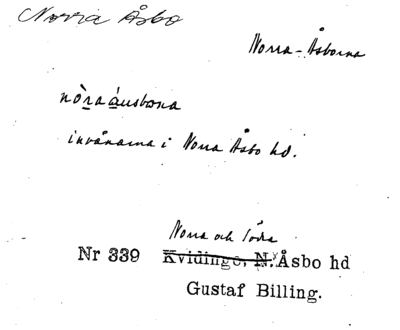 Norra Åsbo
Norra-Åsborna
nòra áusbona
invånarna i Norra Åsbo hd.
Norra och Södra
Nr 339 Kvidinge, N. Åsbo hd
Gustaf Billing.